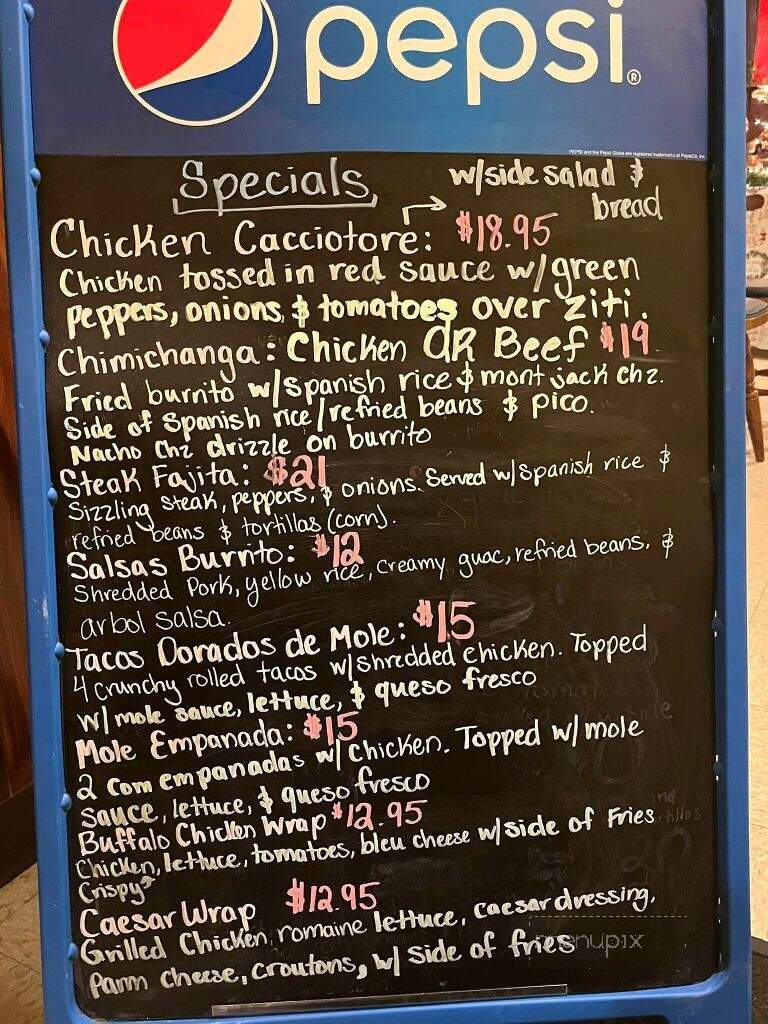 pepsi®
PEPSI and the Pepsi Globe are registered trademarks of PepsiCo, Inc.
Specials
w/side salad &
bread
Chicken Cacciotore: $18.95
Chicken tossed in red sauce w/green
peppers, onions, & tomatoes over ziti.
Chimichanga: Chicken OR Beef $19
Fried burrito w/spanish rice & mont jack chz.
Side of Spanish rice/refried beans & pico.
Nacho Chz drizzle on burrito
Steak Fajita: $21
Sizzling steak, peppers, & onions. Served w/Spanish rice &
refried beans & tortillas (corn).
Salsas Burrito: $12
Shredded Pork, yellow rice, creamy guac, refried beans, &
arbol salsa.
Tacos Dorados de Mole: $15
4 crunchy rolled tacos w/shredded chicken. Topped
w/mole sauce, lettuce, & queso fresco
Mole Empanada: $15
2 corn empanadas w/chicken. Topped w/mole
sauce, lettuce, & queso fresco
Buffalo Chicken Wrap $12.95
Chicken, lettuce, tomatoes, bleu cheese w/side of Fries
Crispy
Caesar Wrap $12.95
Grilled Chicken, romaine lettuce, caesar dressing,
parm cheese, croutons, w/ side of fries
menupix